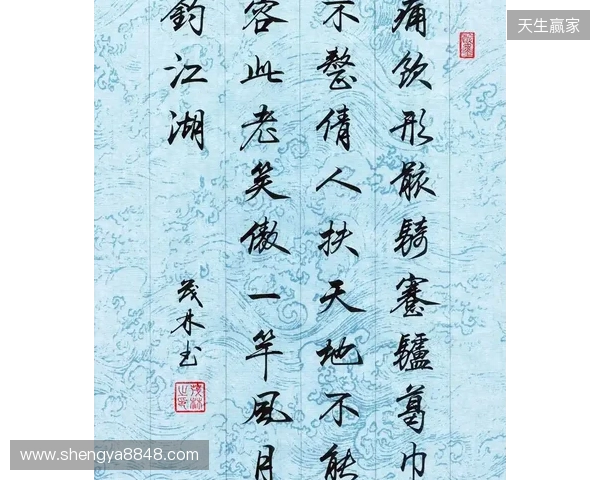 天生赢家
痛飲形骸騎蹇驢葛巾
不整倩人扶天地不能
容此老笑傲一竿風月
釣江湖
茂林书
www.shengya8848.com